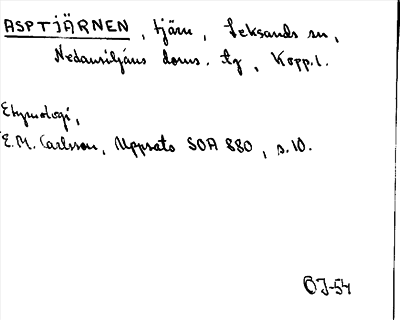 ASPTJÄRNEN, tjärn, Leksands sn,
Nedansiljans doms. tg, Kopp.l.
Etymologi,
E.M. Carlsson, Uppsats SOA 880, s.10.
ÖJ-54